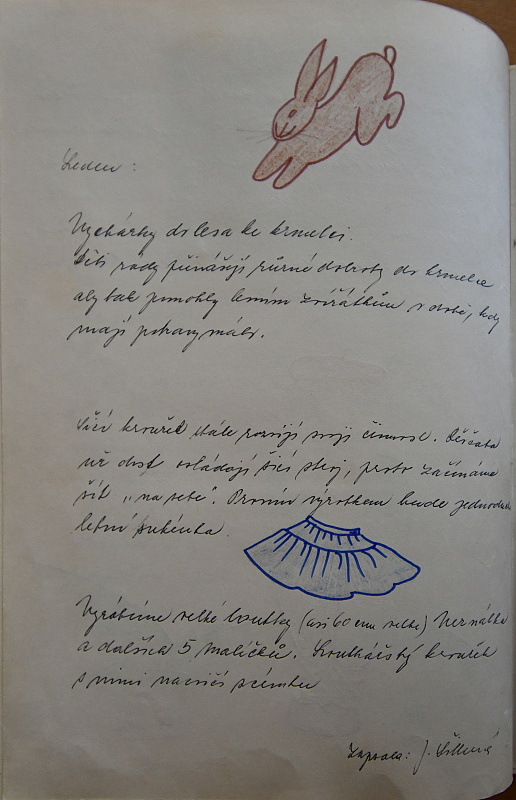 Leden:
Vycházky do lesa ke krmelci.
Děti rády přinášejí různé dobroty do krmelce
aby tak pomohly lesním zvířátkům v době, kdy
mají potravy málo.
Šicí kroužek stále rozvíjí svoji činnost. Děvčata
už dost ovládají šicí stroj, proto začínáme
šít "na sebe". Prvním výrobkem bude jednoduchá
letní sukénka.
Vyrábíme velké loutky (asi 60 cm velké)
a dalších 5 maličků. Loutkářský kroužek
s nimi nacvičí scénku
Zapsala: J.